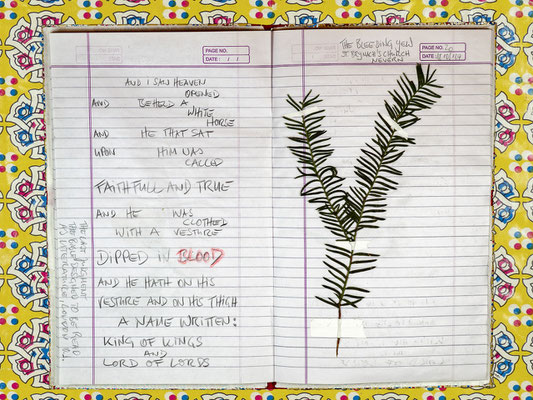 PAGE NO.
DATE: / /
AND I SAW HEAVEN
OPENED
AND BEHELD A
WHITE
HORSE
AND HE THAT SAT
UPON HIM WAS
CALLED
FAITHFULL AND TRUE
AND HE WAS
CLOTHED
WITH A VESTURE
DIPPED IN BLOOD
AND HE HATH ON HIS
VESTURE AND ON HIS THIGH
A NAME WRITTEN:
KING OF KINGS
AND
LORD OF LORDS
THE LAST JUDGEMENT
THE BIBLE DESIGNED TO BE READ
AS LITERATURE LONDON
THE BLEEDING YEW
ST BRYNACH'S CHURCH
NEVERN
PAGE NO.
DATE: